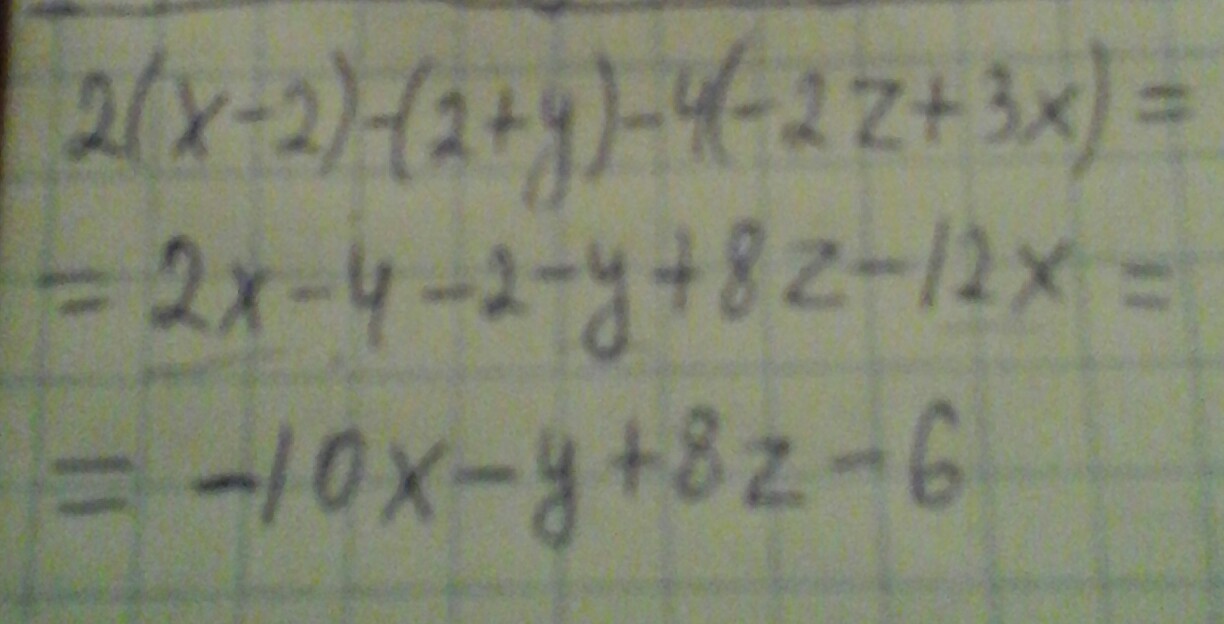 2(x-2)-(2+y)-4(-2z+3x)=
=2x-4-2-y+8z-12x=
=-10x-y+8z-6